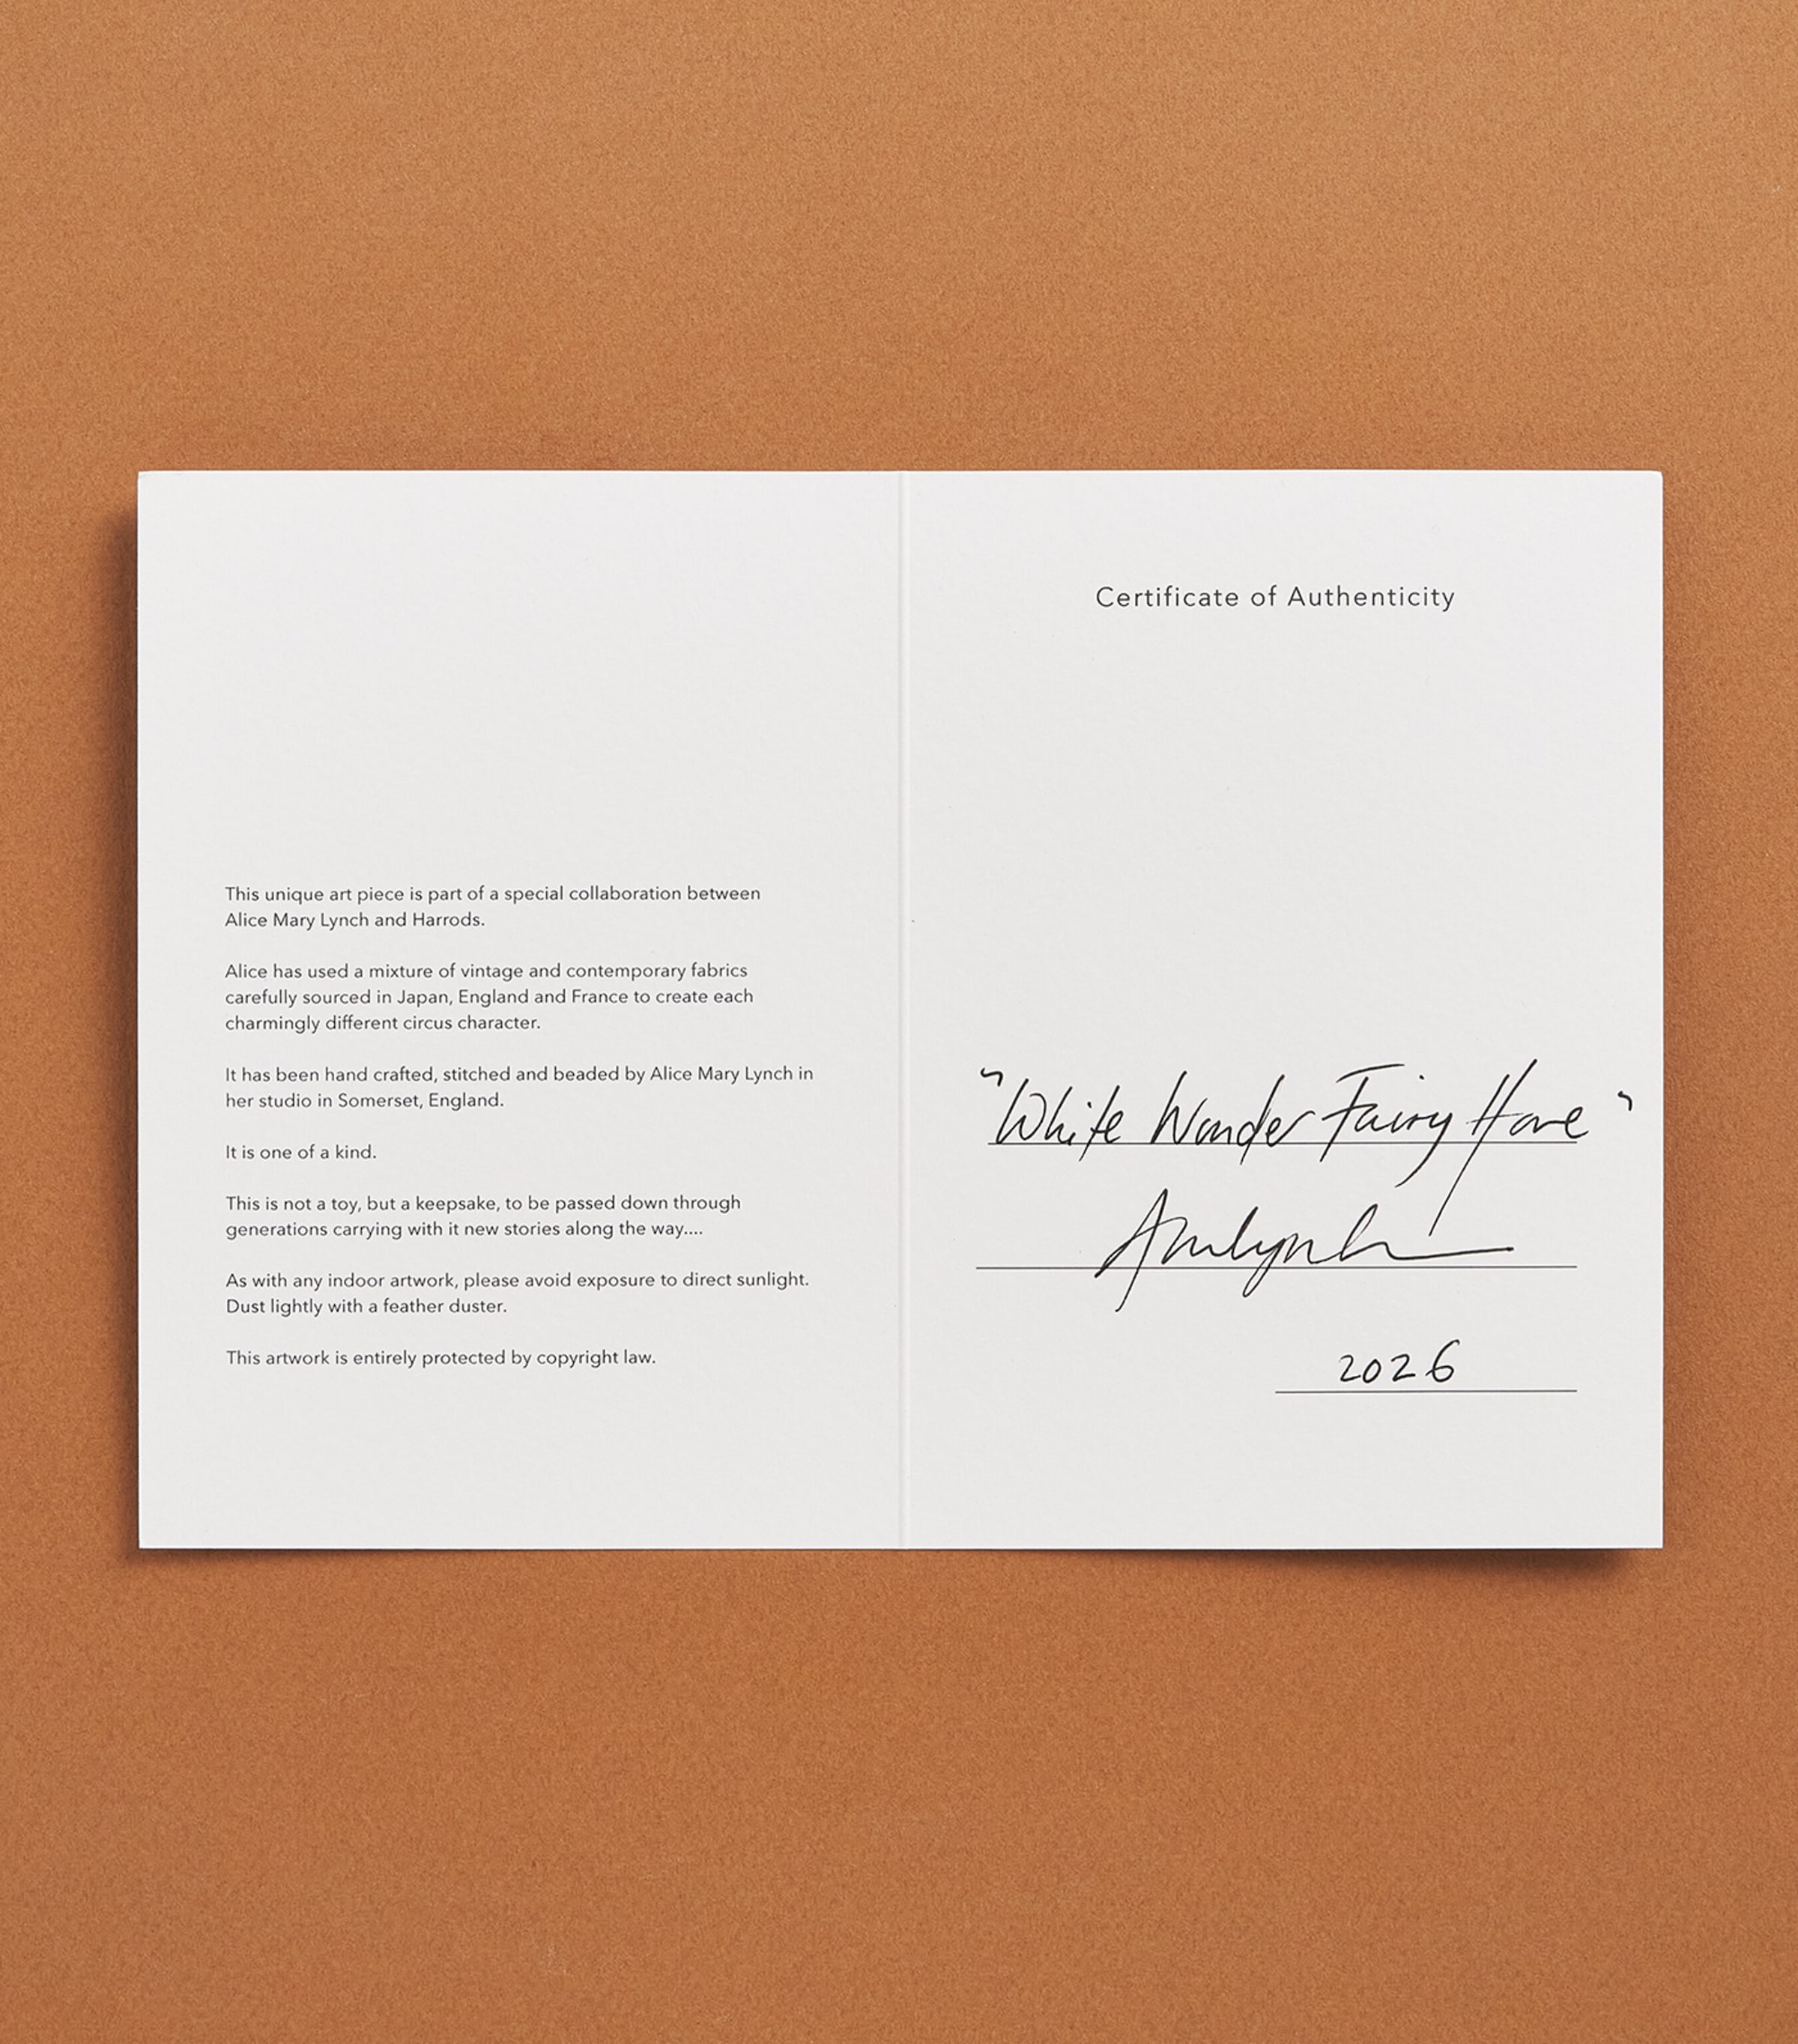 This unique art piece is part of a special collaboration between
Alice Mary Lynch and Harrods.
Alice has used a mixture of vintage and contemporary fabrics
carefully sourced in Japan, England and France to create each
charmingly different circus character.
It has been hand crafted, stitched and beaded by Alice Mary Lynch in
her studio in Somerset, England.
It is one of a kind.
This is not a toy, but a keepsake, to be passed down through
generations carrying with it new stories along the way....
As with any indoor artwork, please avoid exposure to direct sunlight.
Dust lightly with a feather duster.
This artwork is entirely protected by copyright law.
Certificate of Authenticity
"White Wonder Fairy Hare"
AMLynch
2026